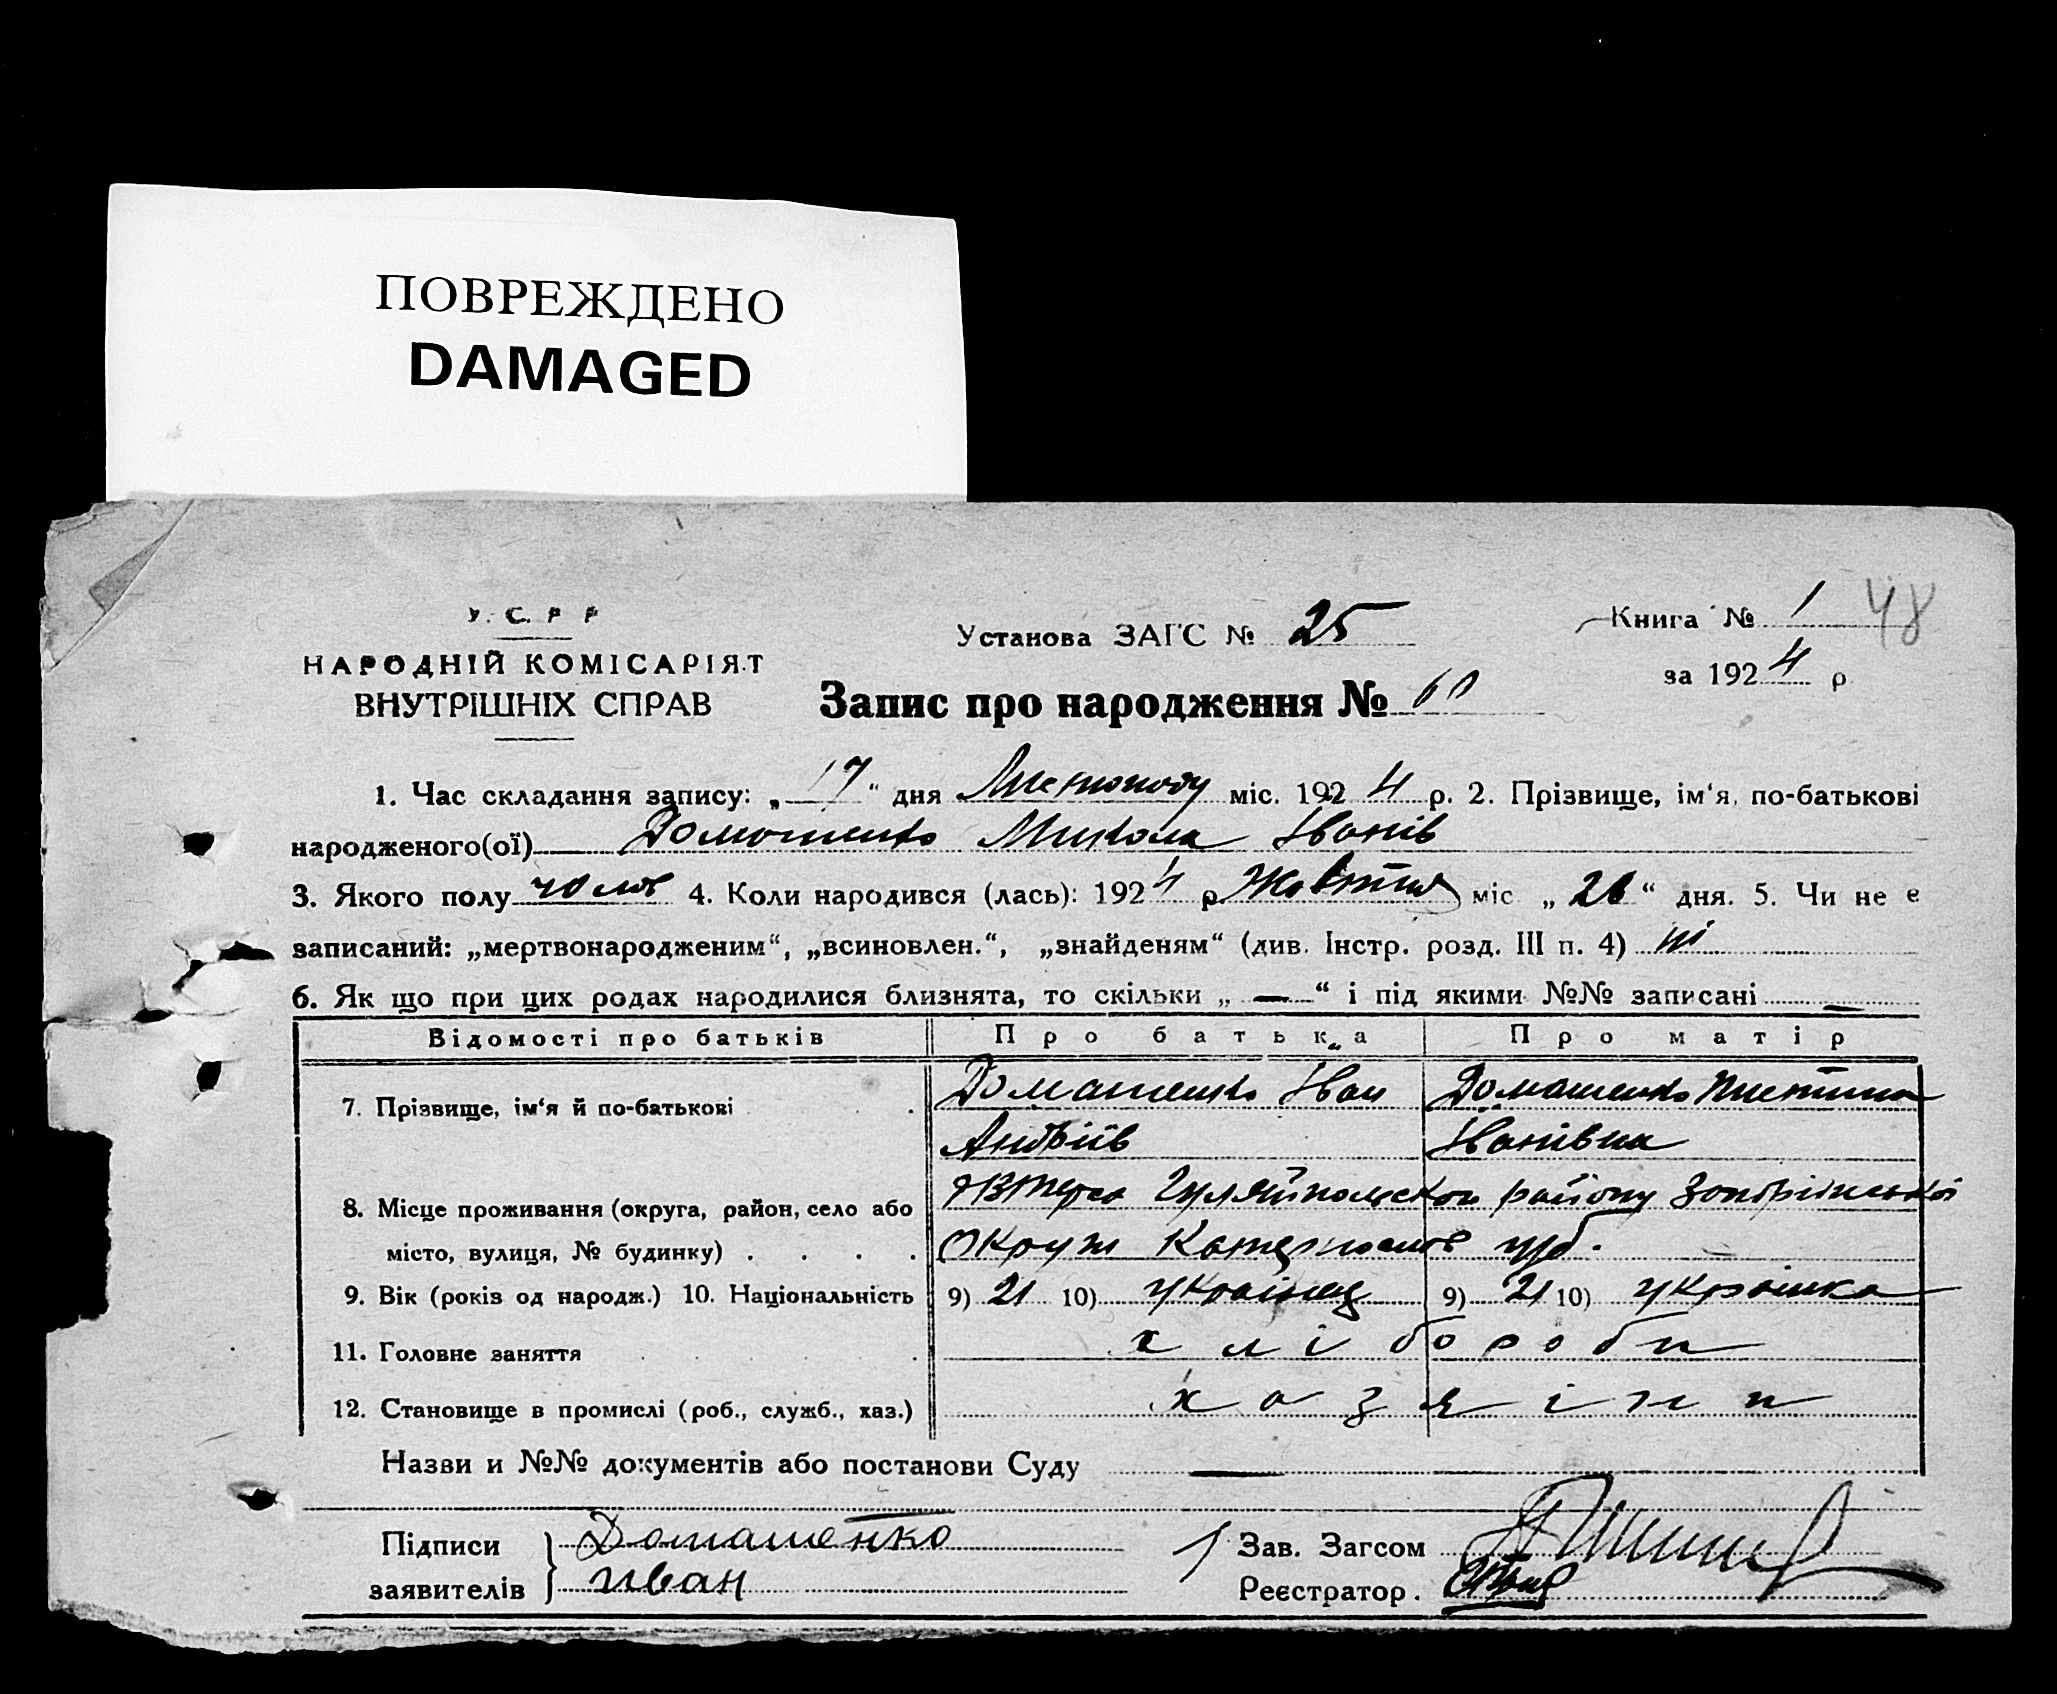 ПОВРЕЖДЕНО
DAMAGED
У. С. Р Р
НАРОДНІЙ КОМІСАРІЯТ
ВНУТРІШНІХ СПРАВ
Установа ЗАГС № 25
Книга № 1 48
за 1924 р
Запис про народження № 60
1. Час складання запису: „17“ дня Листопаду міс. 1924 р. 2. Прізвище, ім‘я, по-батькові
народженого(ої) Домашенко Микола Іванів
3. Якого полу чолов 4. Коли народився (лась): 1924 р. Жовтня міс „ “ дня. 5. Чи не є
записаний: „мертвонародженим“, „всиновлен.“, „знайденям“ (див. Інстр. розд. III п. 4) ні
6. Як що при цих родах народилися близнята, то скільки „ — “ і під якими №№ записані —
Відомості про батьків Про батька Про матір
7. Прізвище, ім‘я й по-батькові Домашенко Іван Домашенко
Андріїв Іванівна
8. Місце проживання (округа, район, село або Гуляйпольскои району Запоріжської
місто, вулиця, № будинку) . . . . Округи Катеринослав губ.
9. Вік (років од народж.) 10. Національність 9) 21 10) Українец 9) 21 10) Українка
11. Головне заняття хлібороби
12. Становище в промислі (роб., служб., хаз.) хазяіни
Назви и №№ документів або постанови Суду —
Підписи Домашенко
заявителів Иван
Зав. Загсом
Реєстратор.